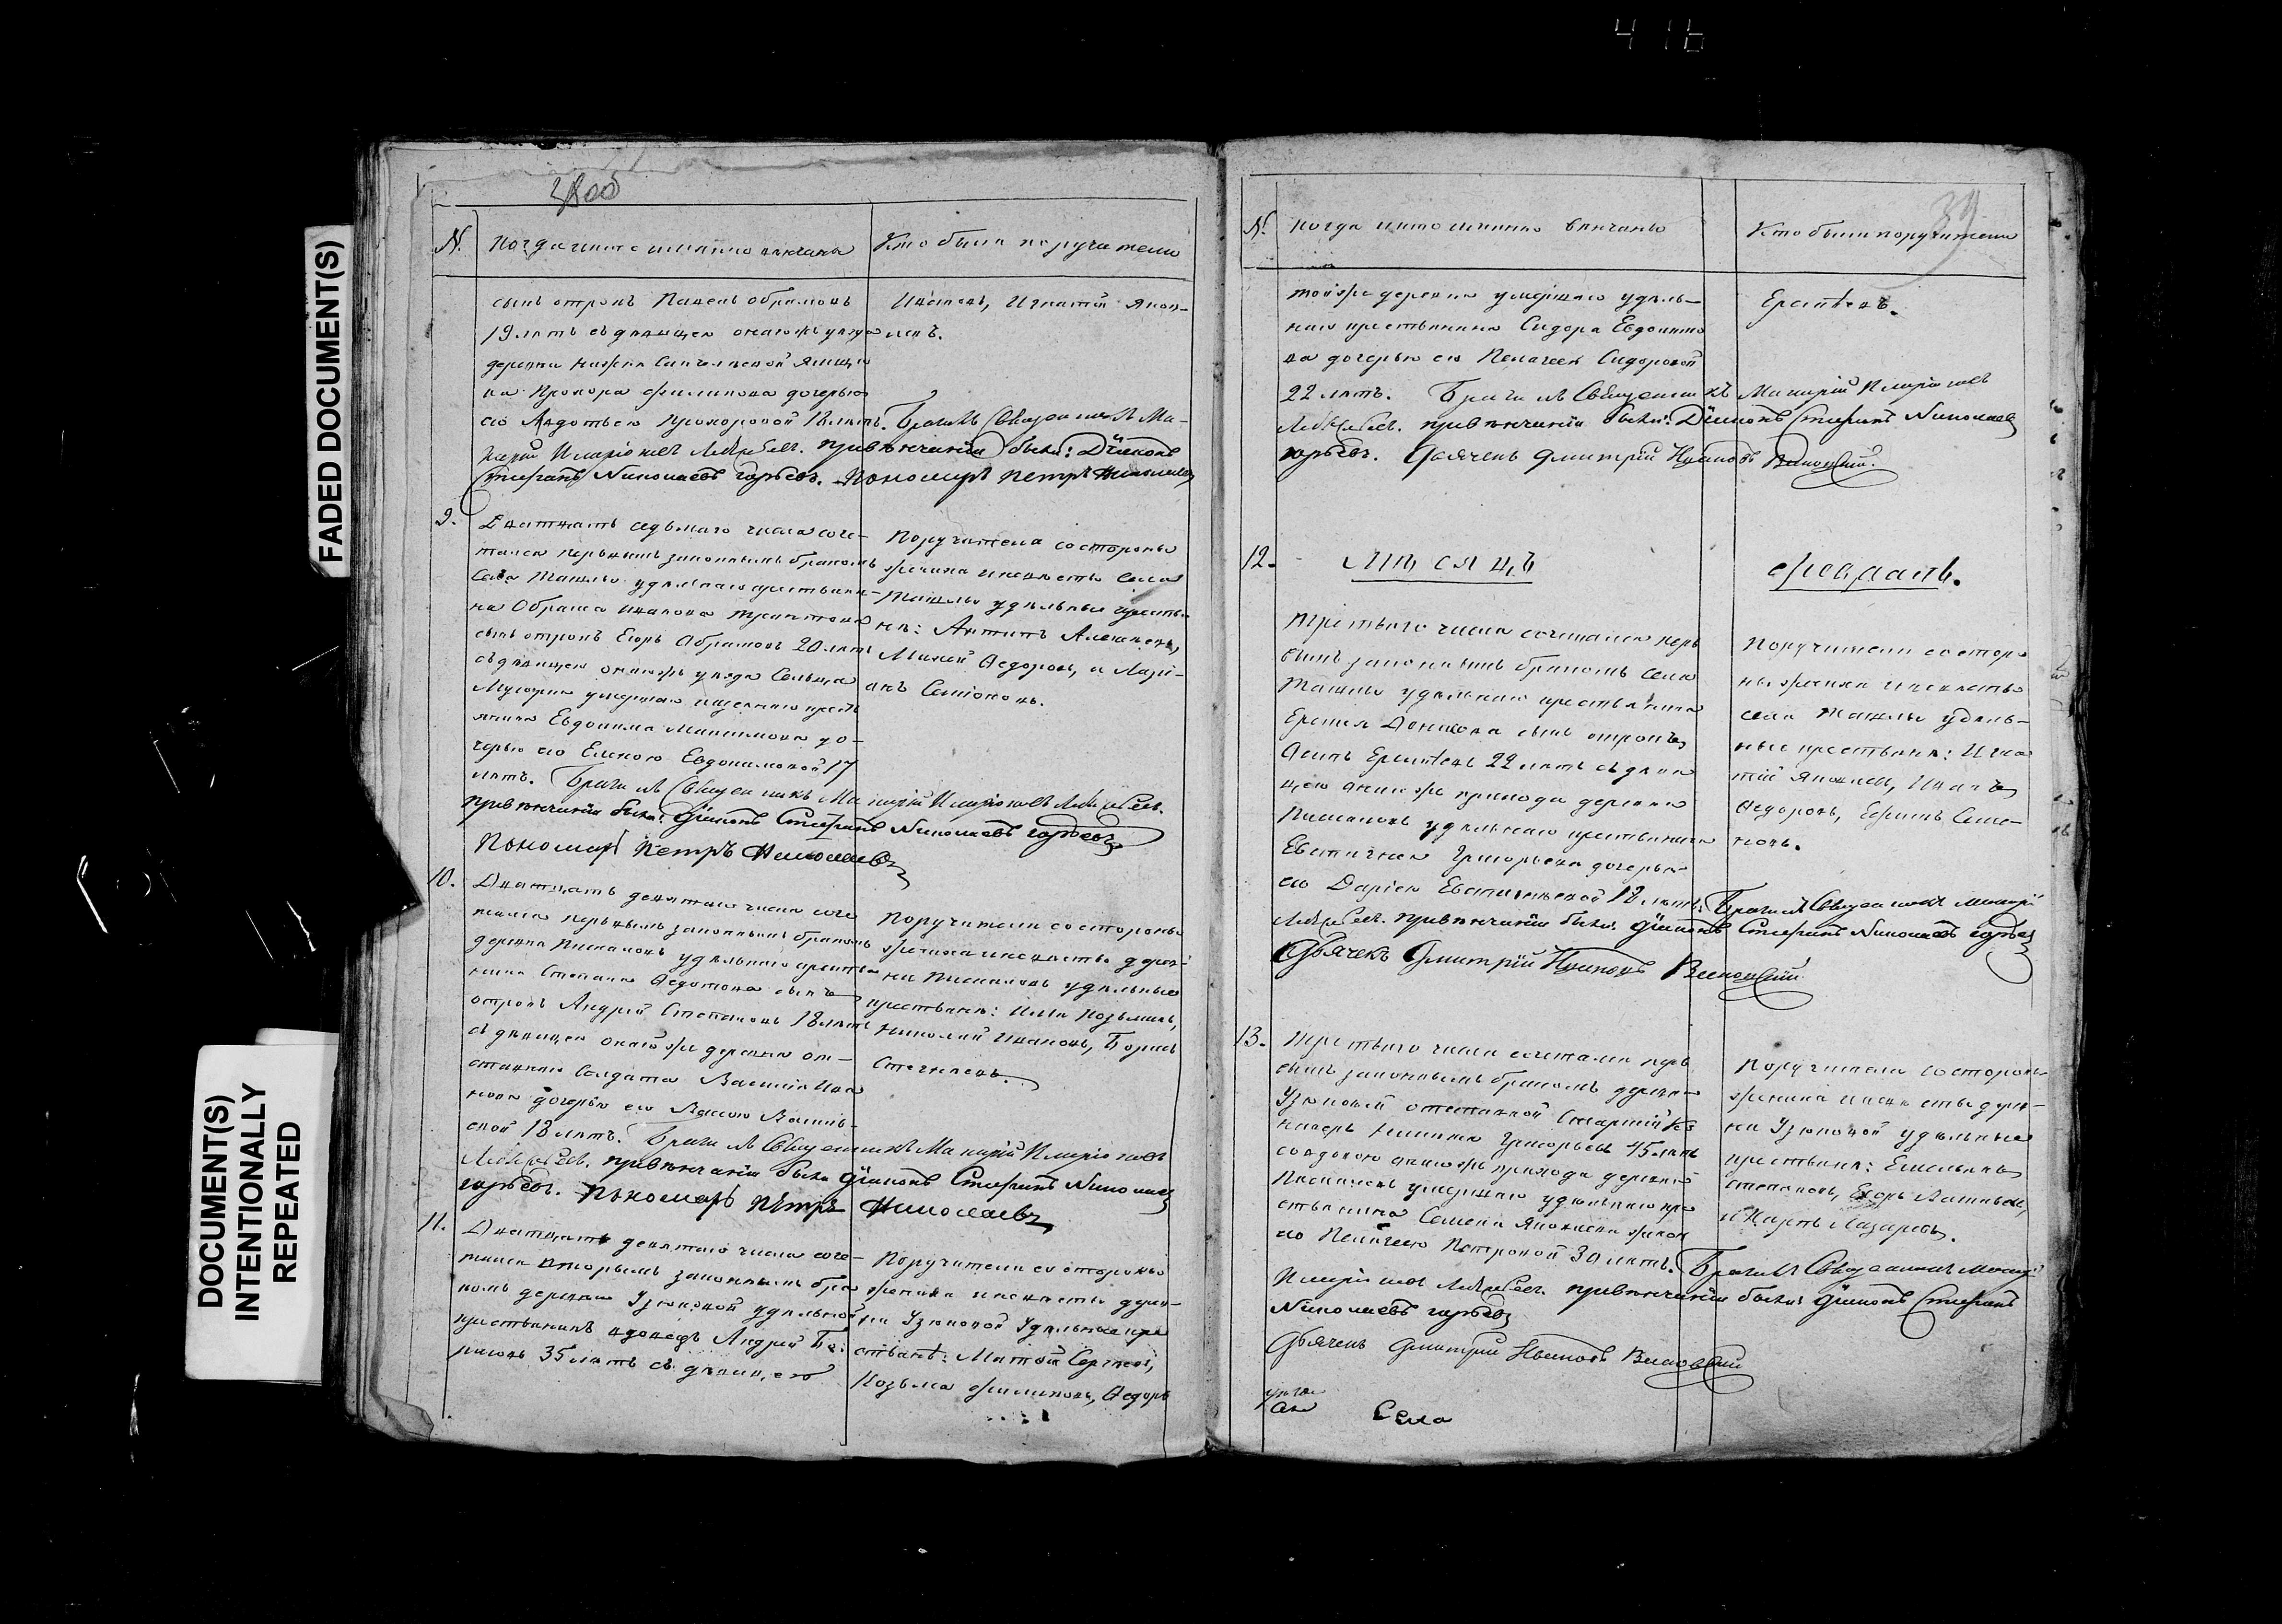 416
FADED DOCUMENT(S)
DOCUMENT(S)
INTENTIONALLY
REPEATED
38об
№. Когда и кто именно венчаны
Кто были поручители
сынъ отрокъ Павелъ Обрамовъ
19 лѣтъ съ дѣвицею онаго жъ уѣзда
деревни
на Прохора Филипова дочерью
его Авдотьею Прохоровой 18 лѣтъ. Бракъ Священникъ Ма-
карій Иларіоновъ привѣнчаніи были: Діаконъ
Стефанъ Николаевъ Юрьевъ. Пономарь Петръ Николаевъ
Ивановъ, Игнатій Яков-
левъ.
9. Дватцать седьмаго числа соче-
тался первымъ законнымъ бракомъ
Села Ташлы удѣльнаго крестьяни-
на Обрама Иванова
сынъ отрокъ Егоръ Абрамовъ 20 лѣтъ
съ дѣвицею онагожъ уѣзда Сельца
умершаго крестья
янина Евдокима Максимова до-
черью его Еленою Евдокимовой 17
лѣтъ. Бракъ Священникъ Макарій Иларіоновъ
привѣнчаніи были: Діаконъ Стефанъ Николаевъ Юрьевъ
Пономарь Петръ Николаевъ
Поручители со стороны
жениха и невѣсты села
Ташлы удѣльные крестья
не: Антипъ Алексѣевъ,
Михей Федоровъ, и Ларі-
онъ Семіоновъ.
10. Дватцать девятаго числа соче
тался первымъ законнымъ бракомъ
деревни Пискаловъ удѣльнаго крестья
нина Степана Федотова сынъ
отрокъ Андрей Степановъ 18 лѣтъ
съ дѣвицею оной же деревни от-
ставнаго Солдата Василія Ива
нова дочерью его Васильев-
ской 18 лѣтъ. Бракъ Священникъ Макарій Иларіоновъ
привѣнчаніи были Діаконъ Стефанъ Николаевъ
Юрьевъ. Пономарь Петръ Николаевъ
Поручители со стороны
жениха и невѣсты дерев-
ни Пискаловъ удѣльные
крестьяне: Илья Козьминъ,
Николай Ивановъ, Борисъ
11. Дватцать девятаго числа соче-
тался вторымъ законнымъ бра
комъ деревни Узюковой удѣльной
крестьянинъ вдовецъ Андрей Бо-
рисовъ 35 лѣтъ съ дѣвицею
Поручители со стороны
жениха и невѣсты дерев-
ни Узюковой Удѣльные кре
стьяне: Матвѣй Сергѣевъ,
Козьма Филиповъ, Федоръ
39
№. Когда и кто именно венчаны
Кто были поручители
той же деревни умершаго удѣль-
наго крестьянина Сидора Евдокимо
ва дочерью его Пелагеею Сидоровой
22 лѣтъ. Бракъ Священникъ Макарій Иларіоновъ
привѣнчаніи были: Діаконъ Стефанъ Николаевъ
Юрьевъ. Дьячекъ Дмитрій Ивановъ
Ерофѣевъ.
12. Мѣсяцъ Февраль.
Третьяго числа сочетался пер
вымъ законнымъ бракомъ села
Ташлы удѣльнаго крестьянина
сынъ отрокъ
22 лѣтъ съ дѣви
цею онаго же прихода деревни
Пискаловъ удѣльнаго крестьянина
Евстигнея Григорьева дочерью
его Дарьею Евстигнѣевой 18 лѣтъ. Бракъ Священникъ Макарій
привѣнчаніи были Діаконъ Стефанъ Николаевъ Юрьевъ
Дьячекъ Дмитрій Ивановъ
Поручители со сторо
ны жениха и невѣсты
села Ташлы удѣль-
ные крестьяне: Игна
тій Яковлевъ, Иванъ
Федоровъ, Ефимъ Семе-
новъ.
13. Третьяго числа сочетался перв
вымъ законнымъ бракомъ деревни
Узюковой отставной
Григорьевъ 45 лѣтъ
со вдовою онагожъ прихода деревни
Пискаловъ умершаго удѣльнаго кре
стьянина Семена Яковлева женою
его Пелагеею Петровой 30 лѣтъ. Бракъ Священникъ Макарій
Иларіоновъ привѣнчаніи были Діаконъ Стефанъ
Николаевъ Юрьевъ
Дьячекъ Дмитрій Ивановъ
Поручители со стороны
жениха и невѣсты дерев-
ни Узюковой удѣльные
крестьяне: Емельянъ
Степановъ, Егоръ Васильевъ,
и Карпъ Лазаревъ.
Села